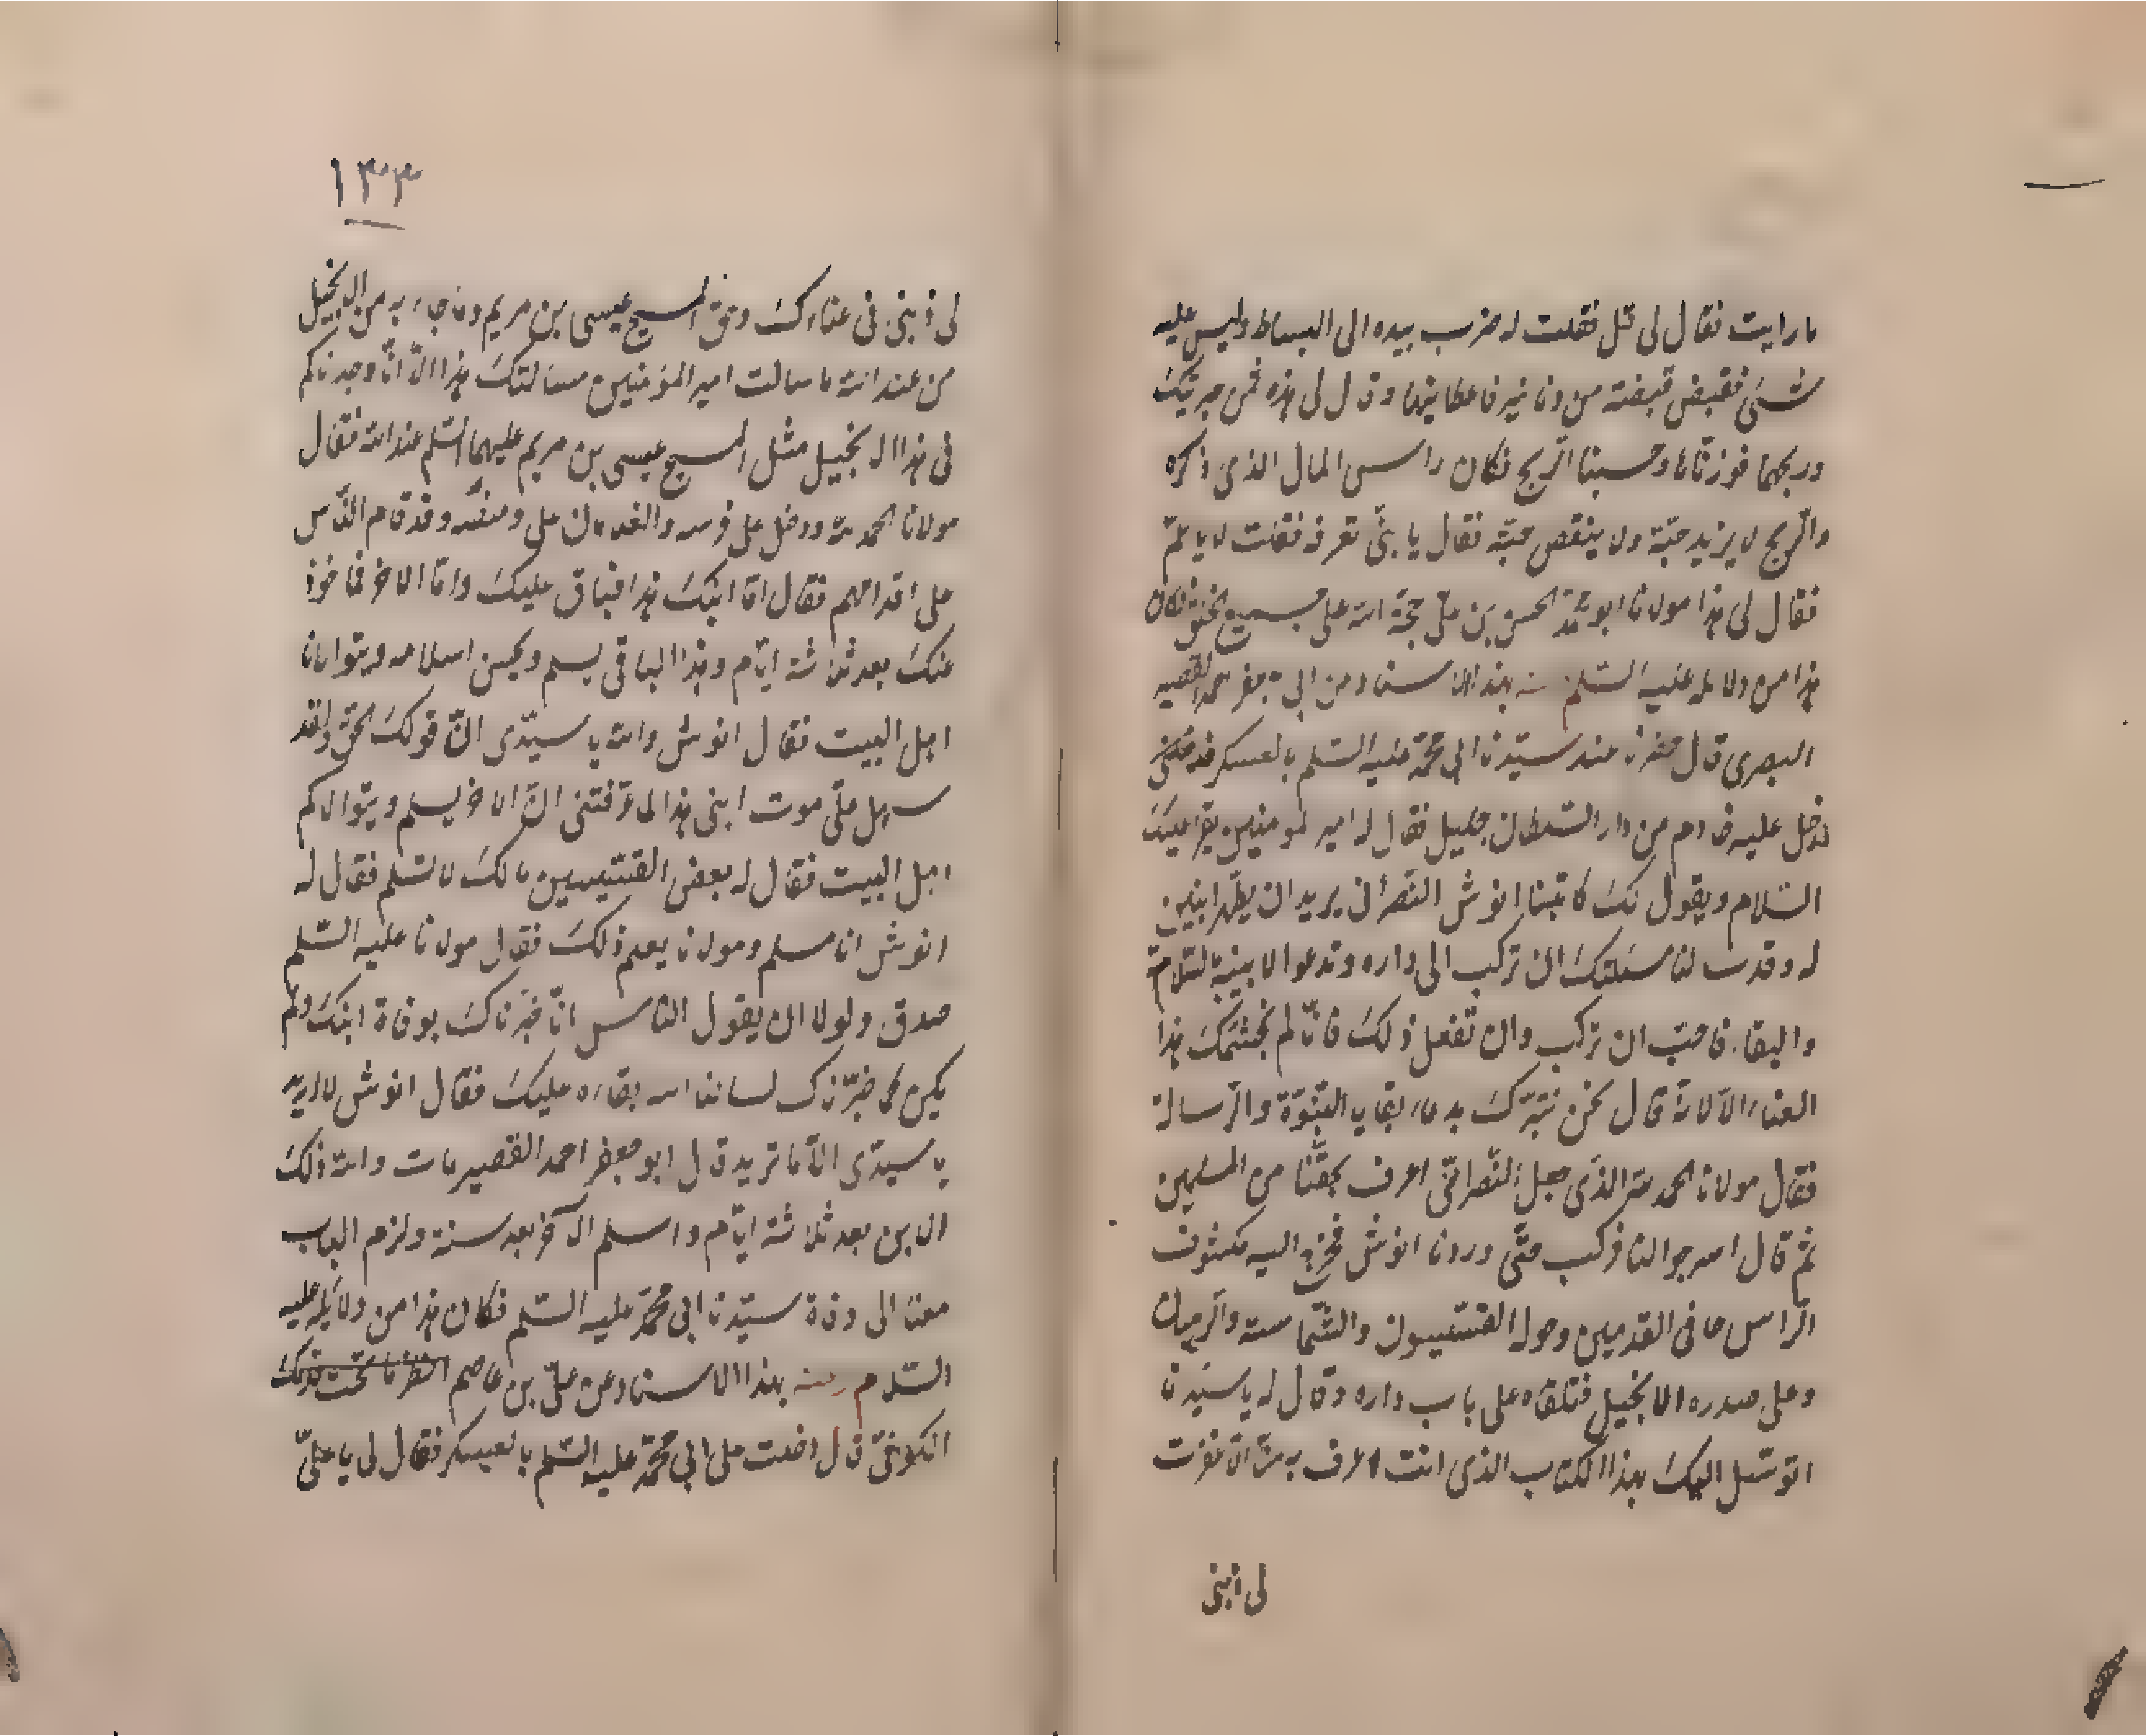 ما رايت فقال لى قل فقلت له ضرب بيده الى البساط وليس عليه
شئ فقبض قبضة من دنانير فاعطانيها وقال لى هذه ثمن
وربحها فوزنّاها وحسبنا الرّبح فكان راس المال الذى ذكره
والرّبح لا يزيد حبّة ولا ينقص حبّة فقال يا بنىّ تعرفه فقلت لا يا عمّ
فقال لى هذا مولانا ابو محمّد الحسن بن علىّ حجّة الله على جميع الخلق فكان
هذا من دلائله عليه السّلم منه بهذا الاسناد من ابى جعفر احمد القصير
البصرى قال حضرنا عند سيّدنا ابى محمّد عليه السّلم بالعسكر
فدخل عليه خادم من دار السّلطان جليل فقال له امير المومنين يقرا عليك
السّلام ويقول لك كاتبنا انوش النّصرانى يريد ان يطهّر ابنين
له وقد سالنا مسئلتك ان تركب الى داره وتدعوا لابنيه بالسّلامة
والبقاء فاحبّ ان تركب وان تفعل ذلك فانّا لم نجشّمك هذا
العناء الّا لانّه قال نحن نتبرّك بدعاء بقايا النّبوّة والرّسالة
فقال مولانا الحمد لله الذى جعل النّصرانىّ اعرف بحقّنا من المسلمين
ثم قال اسرجوا لنا فركب حتّى وردنا انوش فخرج اليه مكشوف
الرّاس حافى القدمين وحوله القسّيسون والشّماسة والرّهبان
وعلى صدره الانجيل فتلقاه على باب داره وقال له يا سيّدنا
اتوسّل اليك بهذا الكتاب الذى انت اعرف به منّا الّا غفرت
لى ذنبى
١٣٣
لى ذنبى فى عنائك وحقّ المسيح عيسى بن مريم وما جاء به من الانجيل
من عند الله ما سالت امير المؤمنين مسالتك هذا الّا انّا وجدناكم
فى هذا الانجيل مثل المسيح عيسى بن مريم عليهما السّلم عند الله فقال
مولانا الحمد لله ودخل على فرسه والغلمان على وقد قام النّاس
على اقدامهم فقال امّا ابنك هذا فباق عليك وامّا الاخر فماخوذ
عنك بعد ثلاثة ايّام وهذا الباقى يسلم ويحسن اسلامه ويتوالانا
اهل البيت فقال انوش والله يا سيّدى انّ قولك الحقّ ولقد
سهل علىّ موت ابنى هذا لما عرّفتنى انّ الاخر يسلم ويتوالاكم
اهل البيت فقال له بعض القسّيسين مالك لا تسلم فقال له
انوش انا مسلم ومولانا يعلم ذلك فقال مولانا عليه السّلم
صدق ولولا ان يقول الناس انّا خبّرناك بوفاة ابنك ولم
يكن كما خبّرناك لسالنا الله بقاءه عليك فقال انوش لا اريد
يا سيدّى الّا ما تريد قال ابو جعفر احمد القصير مات والله ذلك
الابن بعد ثلاثة ايّام واسلم الآخر بعد سنة ولزم الباب
معنا الى وفاة سيّدنا ابى محمّد عليه السّلم فكان هذا من دلائله عليه
السّلام منه بهذا الاسناد عن علىّ بن عاصم انظر ما تحت قدمك
الكوفىّ قال دخلت على ابى محمّد عليه السّلم بالعسكر فقال لى يا علىّ